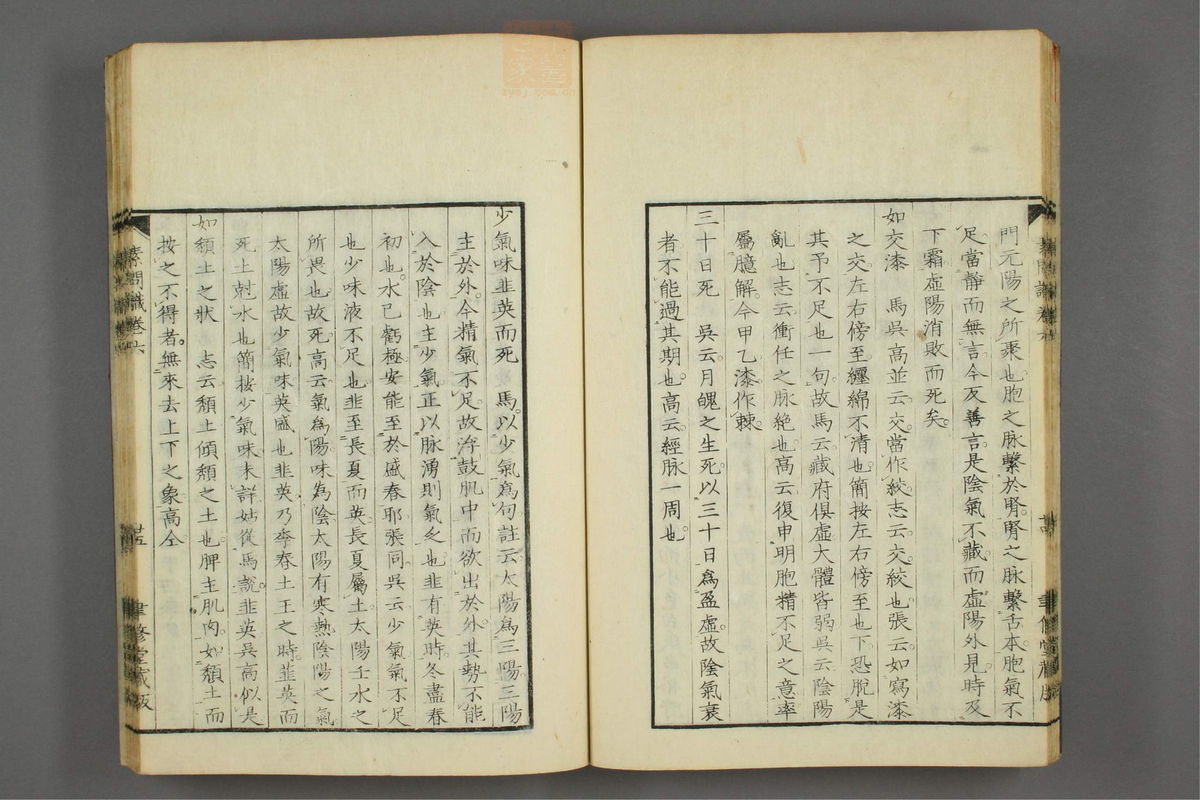 門元陽之所聚也胞之脉繫於腎腎之脉繫舌本胞氣不
足當靜而無言今反善言是陰氣不藏而虛陽外見時及
下霜虛陽消敗而死矣
如交漆　馬吳高並云交當作絞志云交絞也張云如寫漆
之交左右傍至纏綿不清也簡按左右傍至也下恐脫是
其予不足也一句故馬云藏府俱虛大體皆弱吳云陰陽
亂也志云衝任之脉絕也高云復申明胞精不足之意率
屬臆解今甲乙漆作棘
三十日死　吳云月魄之生死以三十日爲盈虛故陰氣衰
者不能過其期也高云經脉一周也
少氣味韭英而死　馬以少氣爲句註云太陽爲三陽三陽
主於外今精氣不足故浮鼓肌中而欲出於外其勢不能
入於陰也主少氣正以脉湧則氣乏也韭有英時冬盡春
初也水已虧極安能至於盛春耶張同吳云少氣氣不足
也少味液不足也韭至長夏而英長夏屬土太陽壬水之
所畏也故死高云氣爲陽味爲陰太陽有寒熱陰陽之氣
太陽虛故少氣味英盛也韭英乃季春土王之時韭英而
死土尅水也簡按少氣味未詳姑從馬說韭英吳高似是
如頹土之狀　志云頹土傾頹之土也脾主肌肉如頹土而
按之不得者無來去上下之象高仝
素問識卷六
廿五
聿修堂藏版